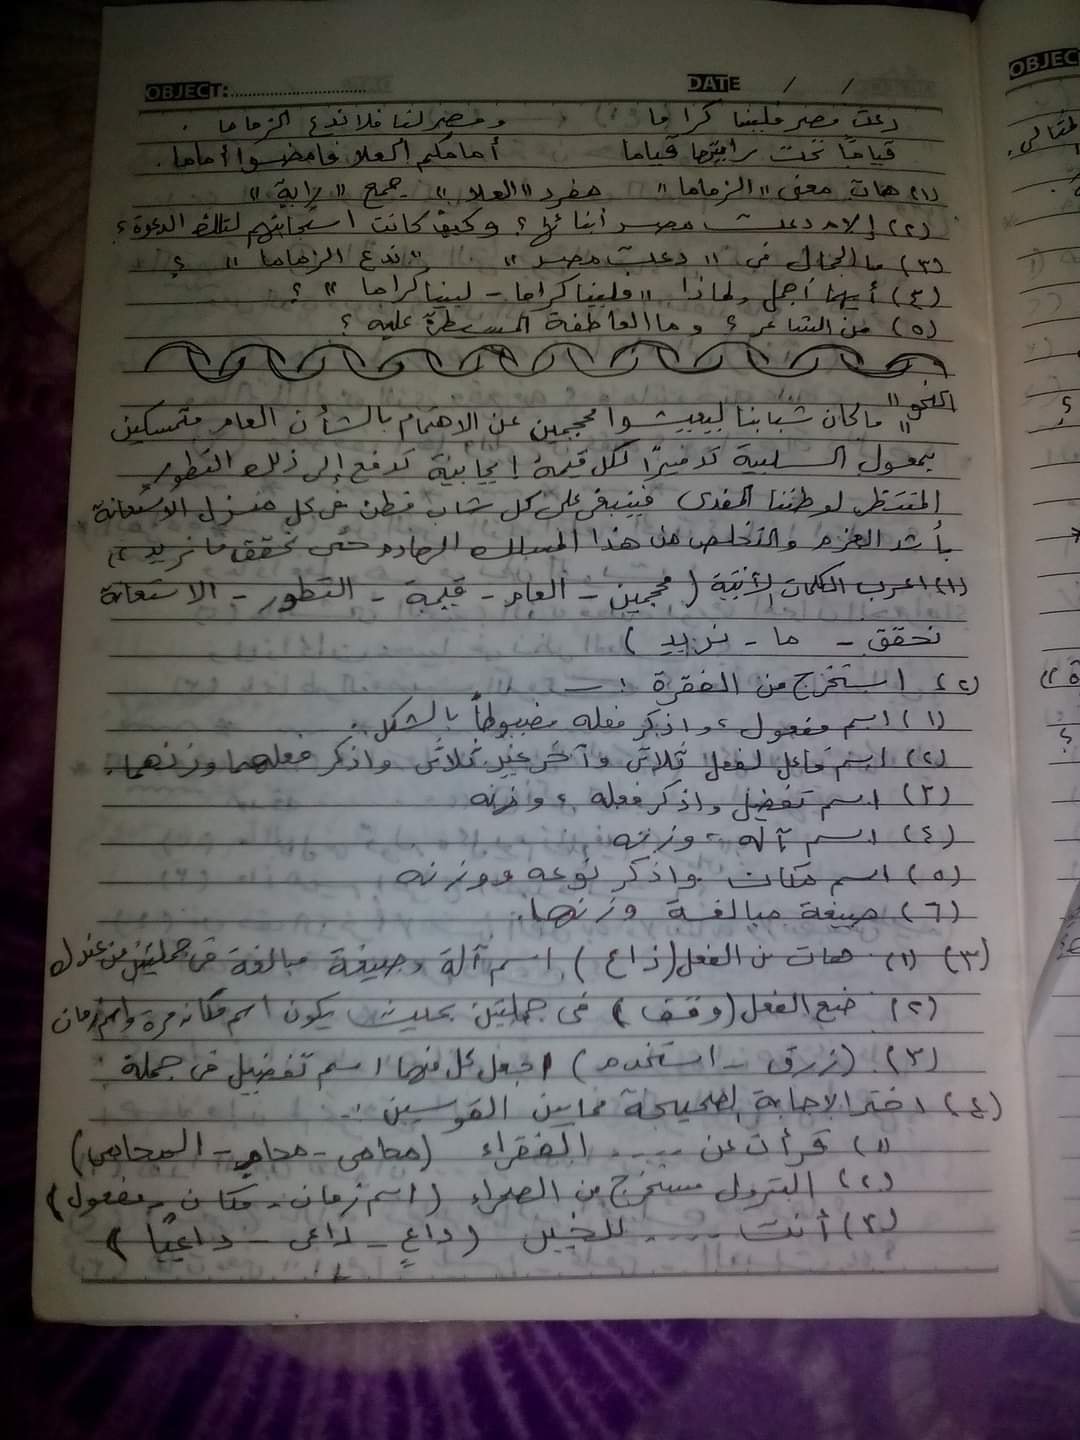 OBJECT:
DATE / /
دعت مصر فلبينا كراما و مصر لنا فلا ندع الزماما .
قياماً تحت رايتها قياما أمامكم العلا فامضوا أماما .
(١) هات معنى "الزماما" مفرد "العلا" جمع "راية"
(٢) إلام دعت مصر أبنائها ؟ وكيف كانت استجابتهم لتلك الدعوة ؟
(٣) ما الجمال فى " دعت مصر " " ندع الزماما " ؟
(٤) أيهما أجمل ولماذا " فلبينا كراما - لبينا كراما " ؟
(٥) من الشاعر ؟ و ما العاطفة المسيطرة عليه ؟
النحو
" ما كان شبابنا ليعيشوا محجمين عن الاهتمام بالشأن العام متمسكين
بمعول السلبية تدميرًا لكل قيمة إيجابية تدفع إلى ذلك التطور
المنتظر لوطننا المفدى فينبغى على كل شاب فطن فى كل منزل الاستعانة
بأشد العزم والتخلص من هذا المسلك الهادم حتى نحقق ما نريد "
(١) اعرب الكلمات الأتية ( محجمين - العام - قيمة - التطور - الاستعانة
نحقق - ما - نريد )
(٢) استخرج من الفقرة : -
(١) اسم مفعول ، واذكر فعله مضبوطاً بالشكل .
(٢) اسم فاعل لفعل ثلاثى وآخر غير ثلاثى واذكر فعلهما وزنهما .
(٣) اسم تفضيل واذكر فعله ، وزنه
(٤) اسم آلة ، وزنه
(٥) اسم مكان واذكر نوعه ووزنه
(٦) صيغة مبالغة وزنها .
(٣) (١) هات من الفعل (ذاع) اسم آلة وصيغة مبالغة فى جملتين من عندك
(٢) ضع الفعل (وقف) فى جملتين بحيث يكون اسم مكان مرة واسم زمان
(٣) (زرق - استخدم) اجعل كل منهما اسم تفضيل فى جملة .
(٤) اختر الاجابة الصحيحة مما بين القوسين :-
(١) قرأت عن ..... الفقراء (محامى - محام - المحامى)
(٢) البترول مستخرج من الصحراء (اسم زمان - مكان - مفعول)
(٣) أنت ..... للخير (داعٍ - داعى - داعيًا)
OBJEC